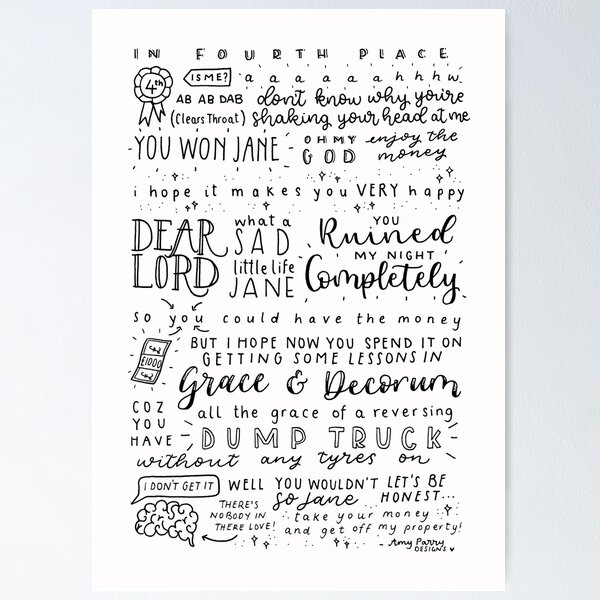 IN FOURTH PLACE
4th IS ME? a a a a a a h h h w
AB AB DAB don't know why you're
(Clears Throat) shaking your head at me
YOU WON JANE OH MY GOD enjoy the money
i hope it makes you VERY happy
DEAR LORD what a SAD little life JANE
YOU Ruined MY NIGHT Completely
so you could have the money
£1000
BUT I HOPE NOW YOU SPEND IT ON
GETTING SOME LESSONS IN
Grace & Decorum
COZ YOU HAVE
all the grace of a reversing
DUMP TRUCK
without any tyres on
I DON'T GET IT WELL YOU WOULDN'T so Jane LET'S BE HONEST...
THERE'S NOBODY IN THERE LOVE!
take your money
and get off my property!
- Amy Parry DESIGNS